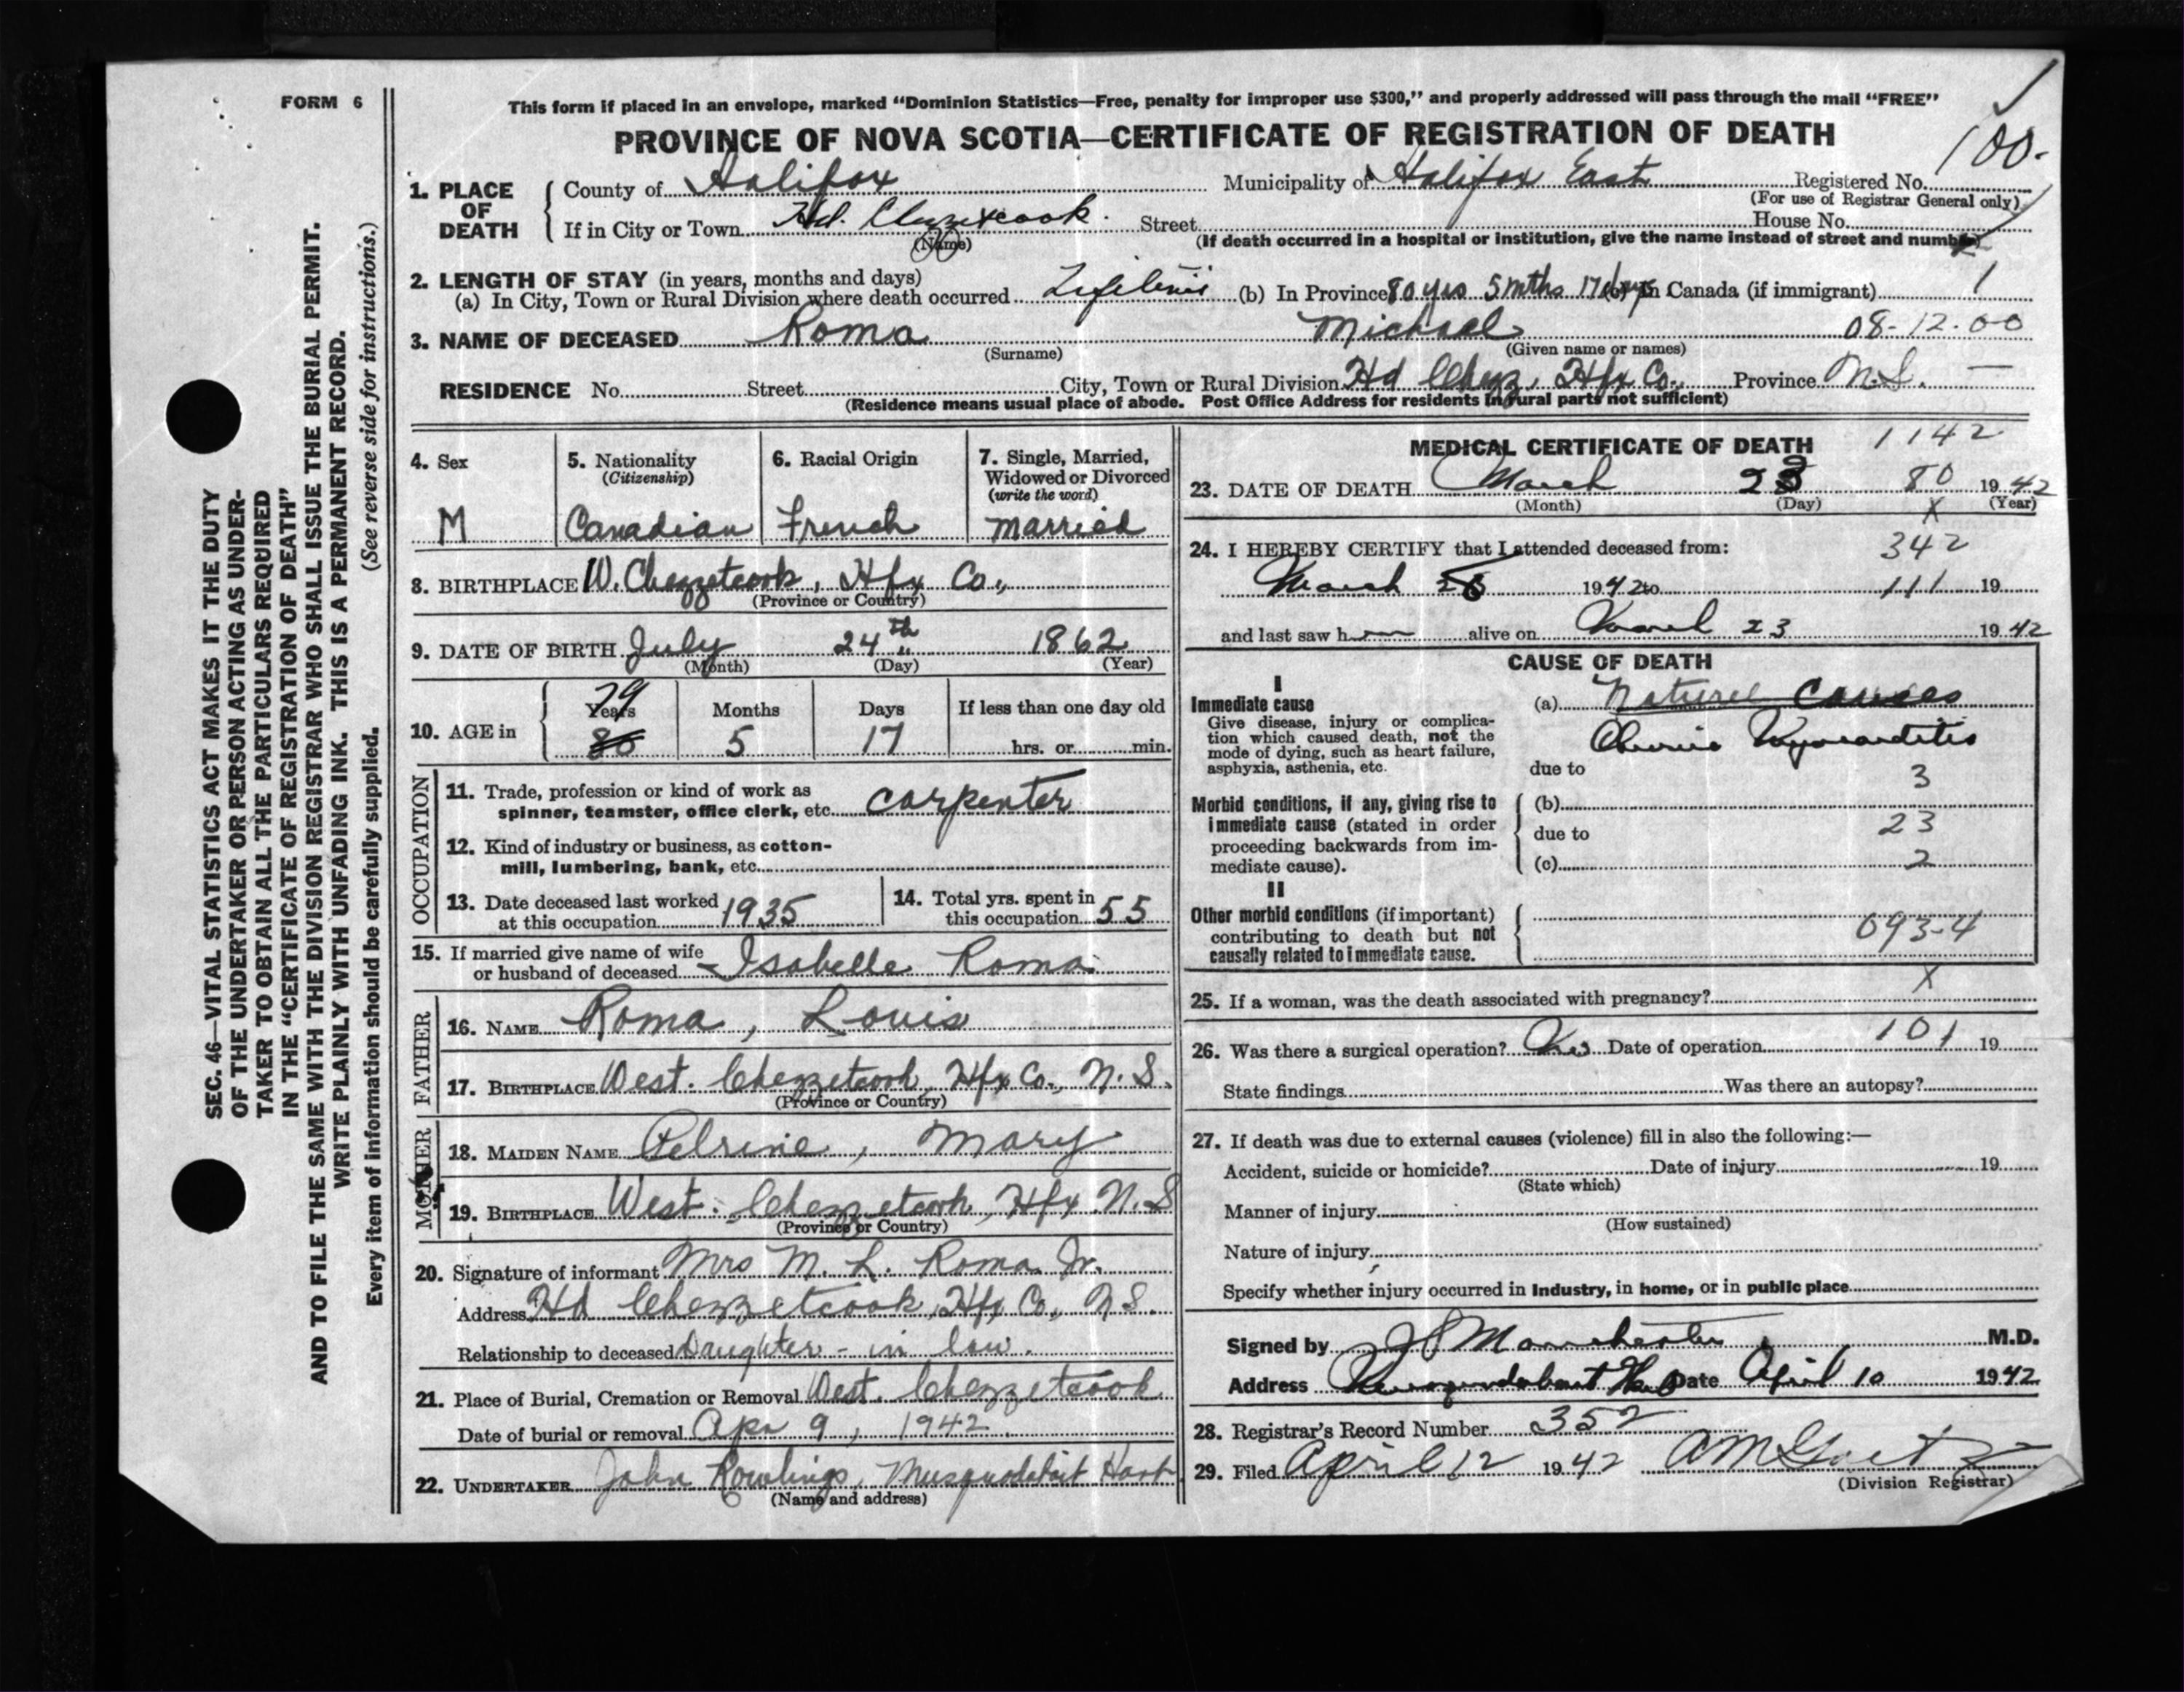 FORM 6
This form if placed in an envelope, marked "Dominion Statistics—Free, penalty for improper use $300," and properly addressed will pass through the mail "FREE"
PROVINCE OF NOVA SCOTIA—CERTIFICATE OF REGISTRATION OF DEATH
100.
1. PLACE OF DEATH
County of Halifax Municipality of Halifax East Registered No.
(For use of Registrar General only)
If in City or Town Hd. Chezzetcook. Street House No.
(Name) (If death occurred in a hospital or institution, give the name instead of street and number)
2. LENGTH OF STAY (in years, months and days)
(a) In City, Town or Rural Division where death occurred Lifetime (b) In Province 80 yrs 5 mths 17 days (c) In Canada (if immigrant) 1
3. NAME OF DECEASED Roma Michael 08-12-00
(Surname) (Given name or names)
RESIDENCE No. Street City, Town or Rural Division Hd Chezz, Hfx Co., Province N.S. —
(Residence means usual place of abode. Post Office Address for residents in rural parts not sufficient)
4. Sex 5. Nationality 6. Racial Origin 7. Single, Married,
(Citizenship) Widowed or Divorced
(write the word)
M Canadian French Married
8. BIRTHPLACE W. Chezzetcook, Hfx Co.,
(Province or Country)
9. DATE OF BIRTH July 24th 1862
(Month) (Day) (Year)
79
10. AGE in Years Months Days If less than one day old
80 5 17 hrs. or min.
OCCUPATION
11. Trade, profession or kind of work as
spinner, teamster, office clerk, etc. carpenter
12. Kind of industry or business, as cotton-
mill, lumbering, bank, etc.
13. Date deceased last worked
at this occupation 1935
14. Total yrs. spent in
this occupation 55
15. If married give name of wife
or husband of deceased Isabelle Roma
FATHER
16. NAME Roma, Louis
17. BIRTHPLACE West. Chezzetcook, Hfx Co., N.S.
(Province or Country)
MOTHER
18. MAIDEN NAME Pelrine, Mary
19. BIRTHPLACE West. Chezzetcook, Hfx N.S
(Province or Country)
20. Signature of informant Mrs M. L. Roma Jr.
Address Hd Chezzetcook, Hfx Co., N.S.
Relationship to deceased Daughter-in law.
21. Place of Burial, Cremation or Removal West. Chezzetcook
Date of burial or removal Apr 9, 1942.
22. UNDERTAKER John Rowlings, Musquodoboit Harb
(Name and address)
MEDICAL CERTIFICATE OF DEATH 1142
23. DATE OF DEATH March 23 80 1942
(Month) (Day) (Year)
X
24. I HEREBY CERTIFY that I attended deceased from: 342
March 1942 to 111 19
and last saw h alive on March 23 1942
CAUSE OF DEATH
I
Immediate cause
Give disease, injury or complica-
tion which caused death, not the
mode of dying, such as heart failure,
asphyxia, asthenia, etc.
(a) Natural Causes
Chronic Myocarditis
due to 3
Morbid conditions, if any, giving rise to
immediate cause (stated in order
proceeding backwards from im-
mediate cause).
(b)
due to 23
(c) 2
II
Other morbid conditions (if important)
contributing to death but not
causally related to immediate cause.
093-4
X
25. If a woman, was the death associated with pregnancy?
26. Was there a surgical operation? Date of operation 101 19
State findings Was there an autopsy?
27. If death was due to external causes (violence) fill in also the following:—
Accident, suicide or homicide? Date of injury 19
(State which)
Manner of injury
(How sustained)
Nature of injury
Specify whether injury occurred in Industry, in home, or in public place
Signed by Manchester M.D.
Address Date April 10 1942
28. Registrar's Record Number 352
29. Filed April 12 1942
(Division Registrar)
SEC. 46—VITAL STATISTICS ACT MAKES IT THE DUTY
OF THE UNDERTAKER OR PERSON ACTING AS UNDER-
TAKER TO OBTAIN ALL THE PARTICULARS REQUIRED
IN THE "CERTIFICATE OF REGISTRATION OF DEATH"
AND TO FILE THE SAME WITH THE DIVISION REGISTRAR WHO SHALL ISSUE THE BURIAL PERMIT.
WRITE PLAINLY WITH UNFADING INK. THIS IS A PERMANENT RECORD.
Every item of information should be carefully supplied. (See reverse side for instructions.)